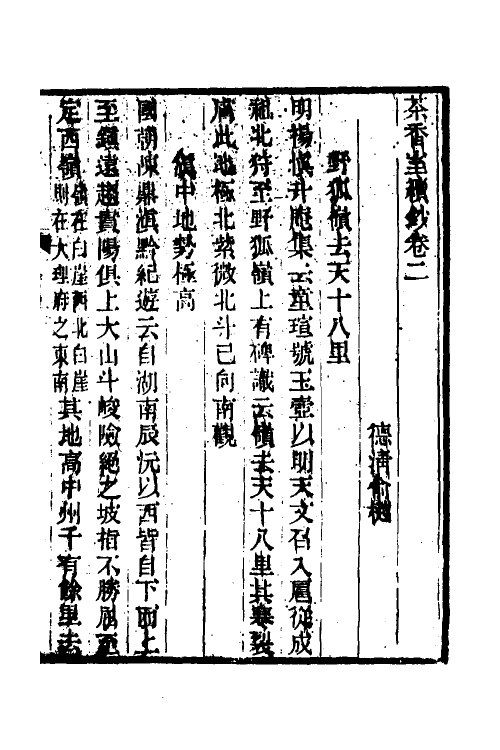 茶香室續鈔卷二
德清俞樾
野狐嶺去天十八里
明楊慎升庵集云童瑄號玉壺以明天文召入扈從成
祖北狩至野狐嶺上有碑識云嶺去天十八里其寒裂
膚此地極北紫微北斗已向南觀
滇中地勢極高
國朝陳鼎滇黔紀遊云自湖南辰沅以西皆自下而上
至鎮遠趨貴陽俱上大山斗峻險絕之坡指不勝屈至
定西嶺嶺在白崖西北白崖則在大理府之東南其地高中州千有餘里去